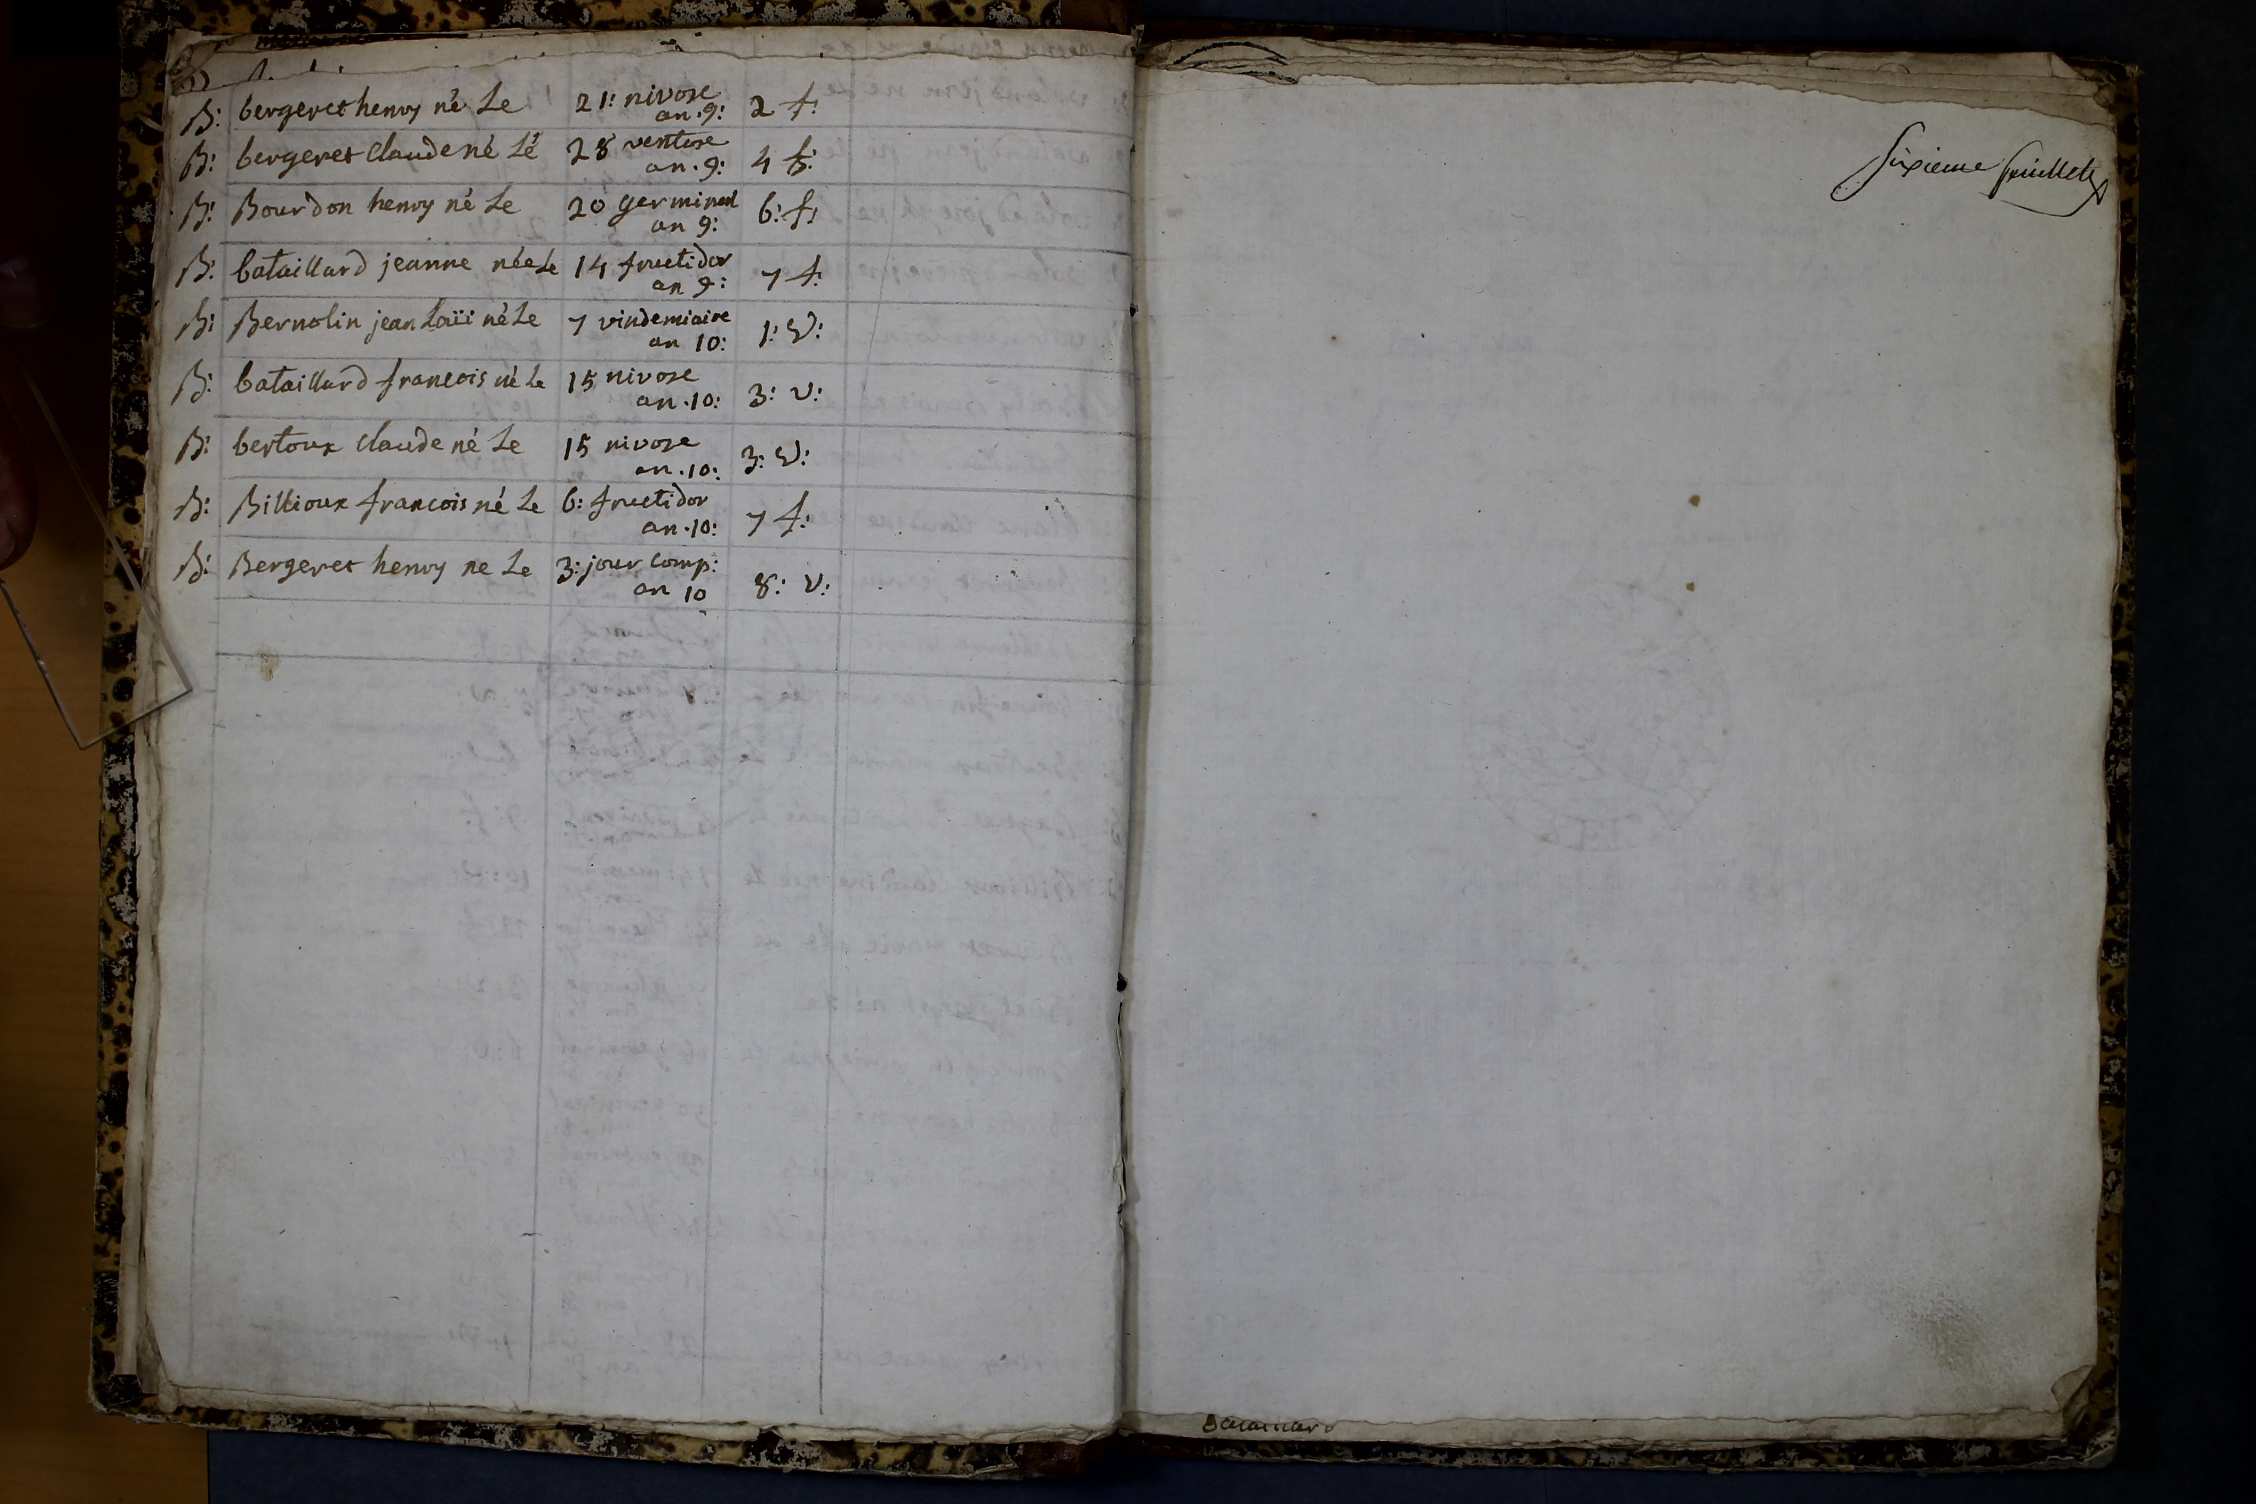 B: bergeret henry né Le 21: nivose 2 f:
an .9:
B: bergeret Claude né Lé 28 ventose 4 f:
an .9:
B: Bourdon henry né Le 20 germinal 6: f:
an 9:
B: bataillard jeanne née Le 14 fructidor 7 f:
an 9:
B: Bernolin jean Loüi né Le 7 vindemiaire 1: V:
an 10:
B: bataillard francois né Le 15 nivose 3: v:
an .10:
B: bertoux Claude né Le 15 nivose 3: V:
an .10:
B: Billioux francois né Le 6: fructidor 7 f:
an .10:
B: Bergeret henry ne Le 3: jour Comp: 8: v:
an 10
Sixieme feuillet